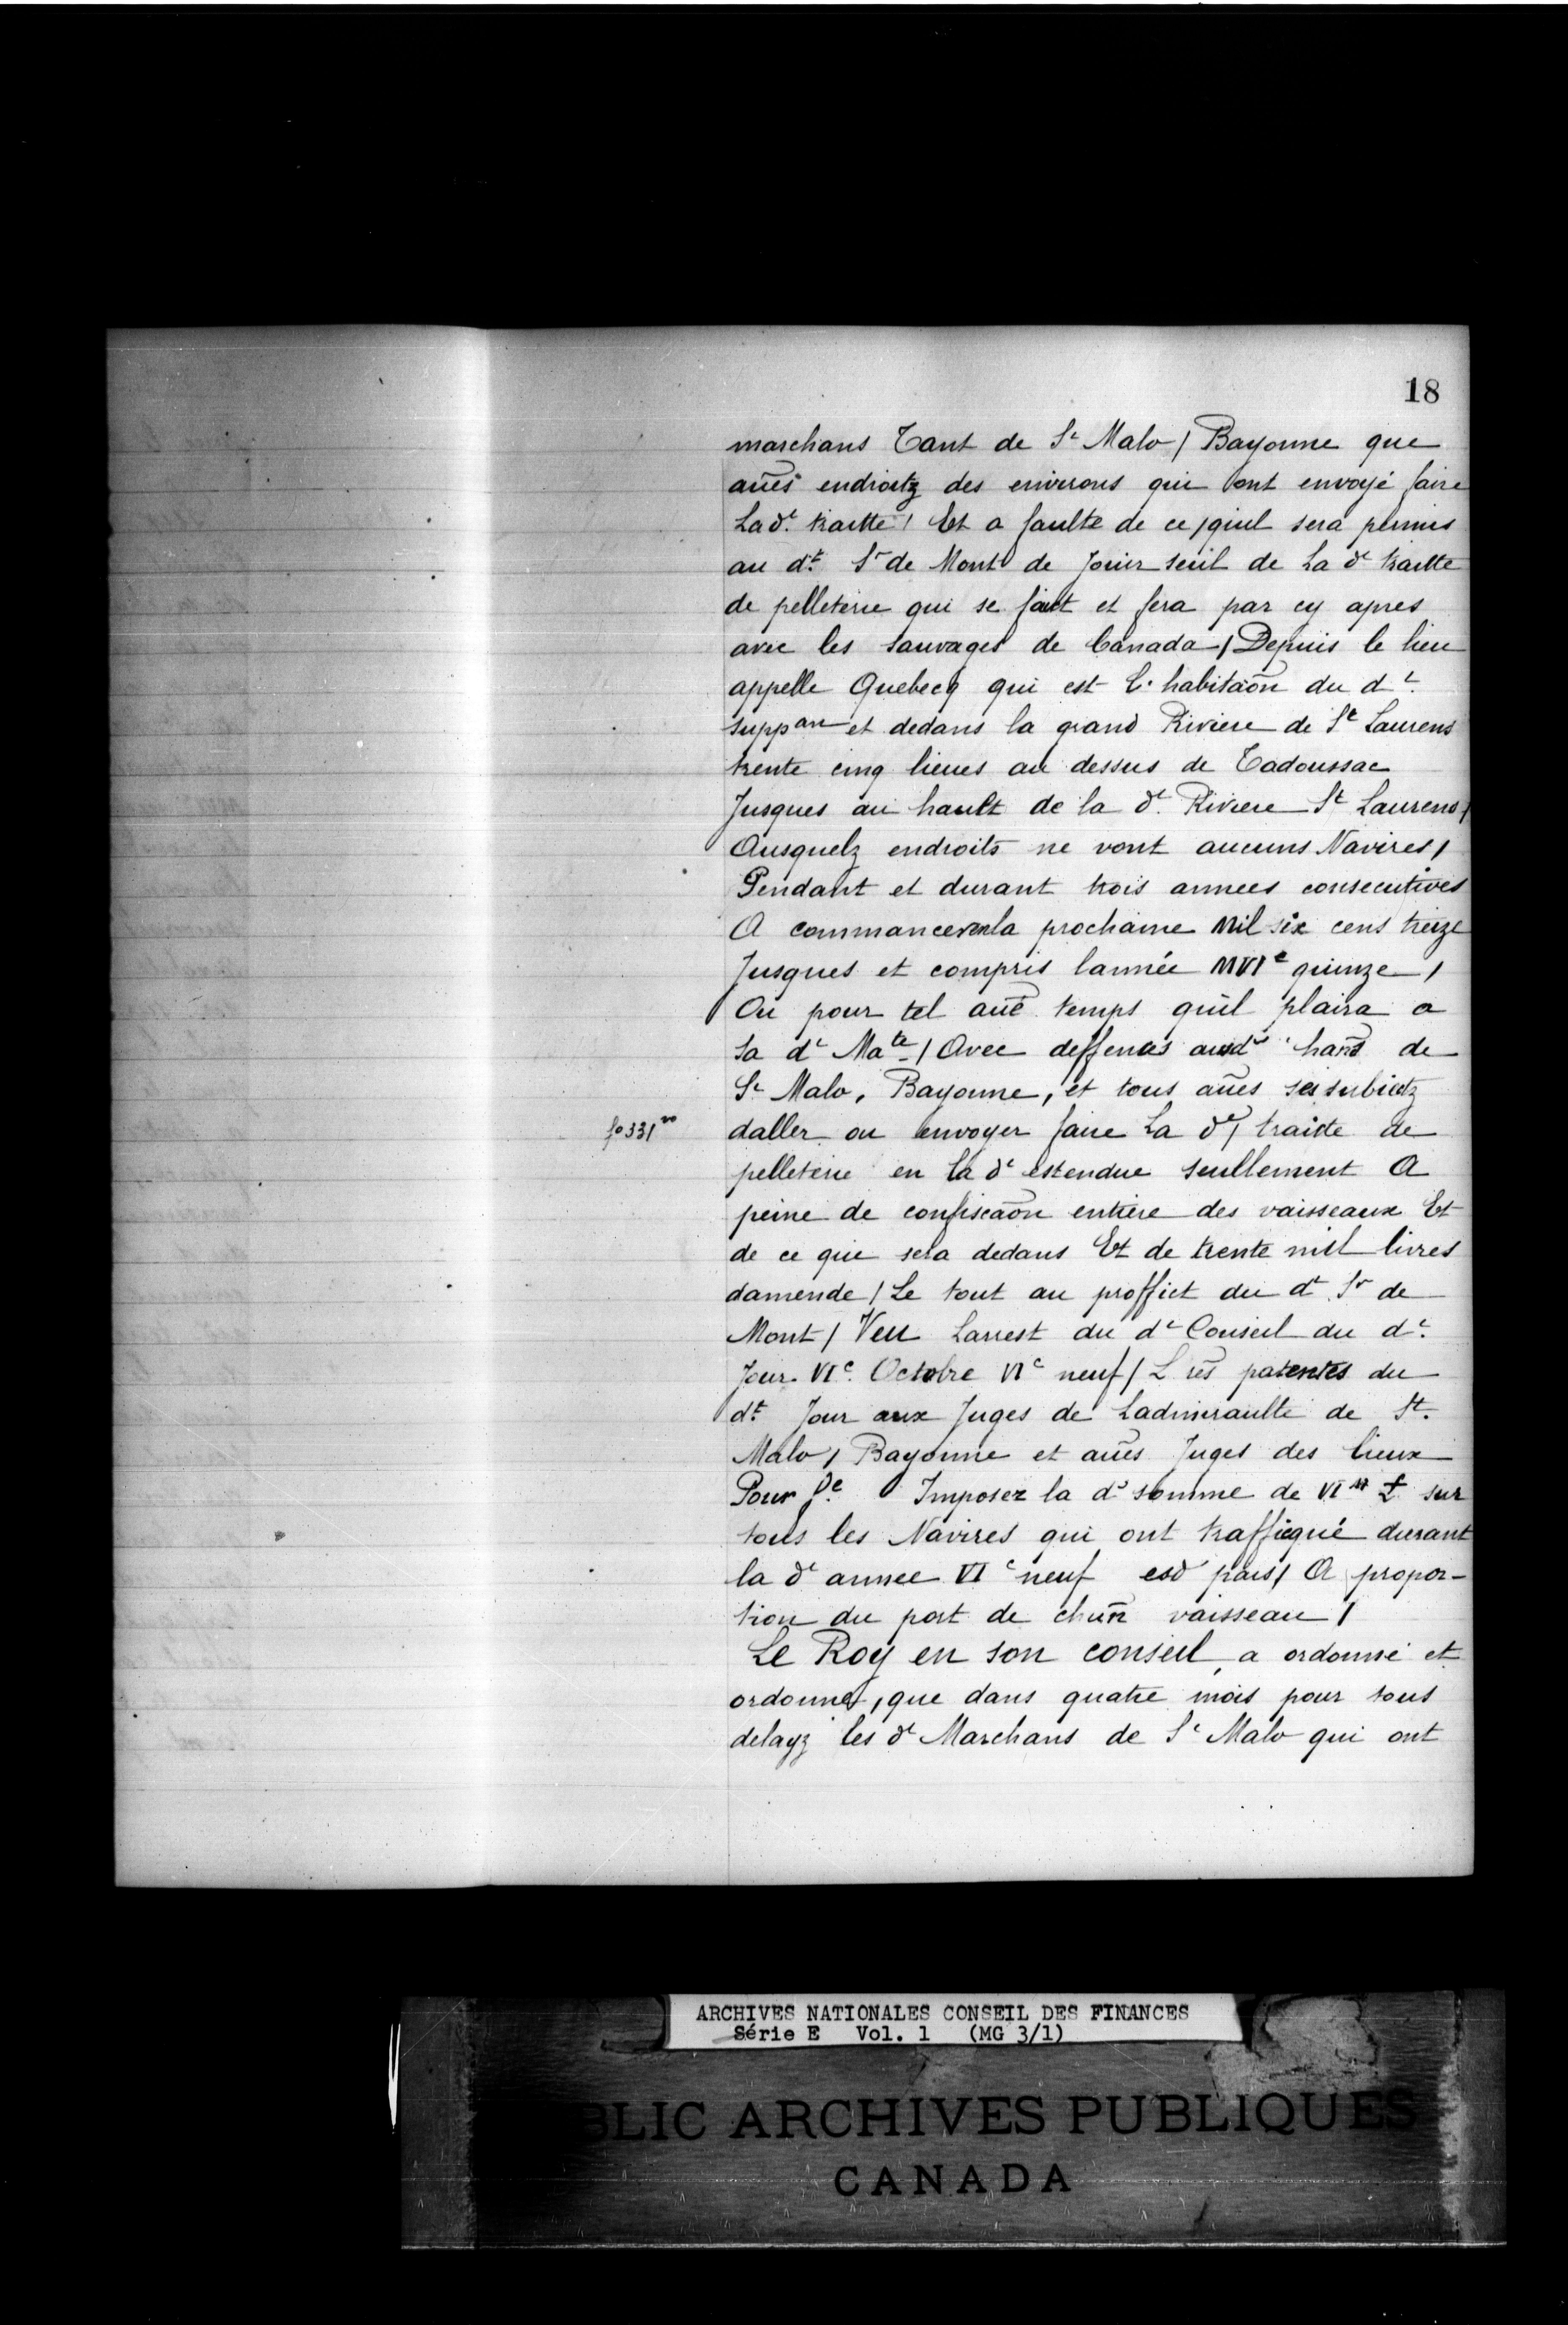 18
marchans Tant de St Malo / Bayonne que
aũes endroitz des environs qui ont envoyé faire
Lad.t traitte / Et a faulte de ce / quil sera permis
au d.t Sr de Mont de Jouir seul de La dt traitte
de pelleterie qui se fait et fera par cy apres
avec les sauvages de Canada / Depuis le lieu
appelle Quebecq qui est l'habitaõn du dt.
suppan et dedans la grand Riviere de St Laurens
trente cinq lieues au dessus de Tadoussac
Jusques au hault de la dt. Riviere St Laurens /
Ausquelz endroits ne vont aucuns Navires /
Pendant et durant trois annees consecutives
A commancer en la prochaine Mil six cens treize
Jusques et compris lannée MVIc quinze /
Ou pour tel aũe temps quil plaira a
Sa dt Mate / Avec deffences ausd hand de
St Malo, Bayonne, et tous aũes ses subiectz
fo 331 vo
daller ou envoyer faire La dt / traitte de
pelleterie en la dt estendue seullement A
peine de confiscaõn entiere des vaisseaux Et
de ce que sera dedans Et de trente mil livres
damende / Le tout au proffict du dt Sr de
Mont / Veu Larrest du dt Conseil du dt.
Jour VIe. Octobre VIc neuf / L res patentes du
d.t Jour aux Juges de Ladmiraulté de St.
Malo / Bayonne et aũes Juges des lieux
Pour fe. Imposer la dt somme de VI M ₤ sur
tous les Navires qui ont trafficqué durant
la dt annee VIc neuf esd pais / A propor-
tion du port de chũn vaisseau /
Le Roy en son conseil, a ordonné et
ordonne, que dans quatre mois pour tous
delayz les dt Marchans de St Malo qui ont
ARCHIVES NATIONALES CONSEIL DES FINANCES
Série E Vol. 1 (MG 3/1)
BLIC ARCHIVES PUBLIQUES
CANADA